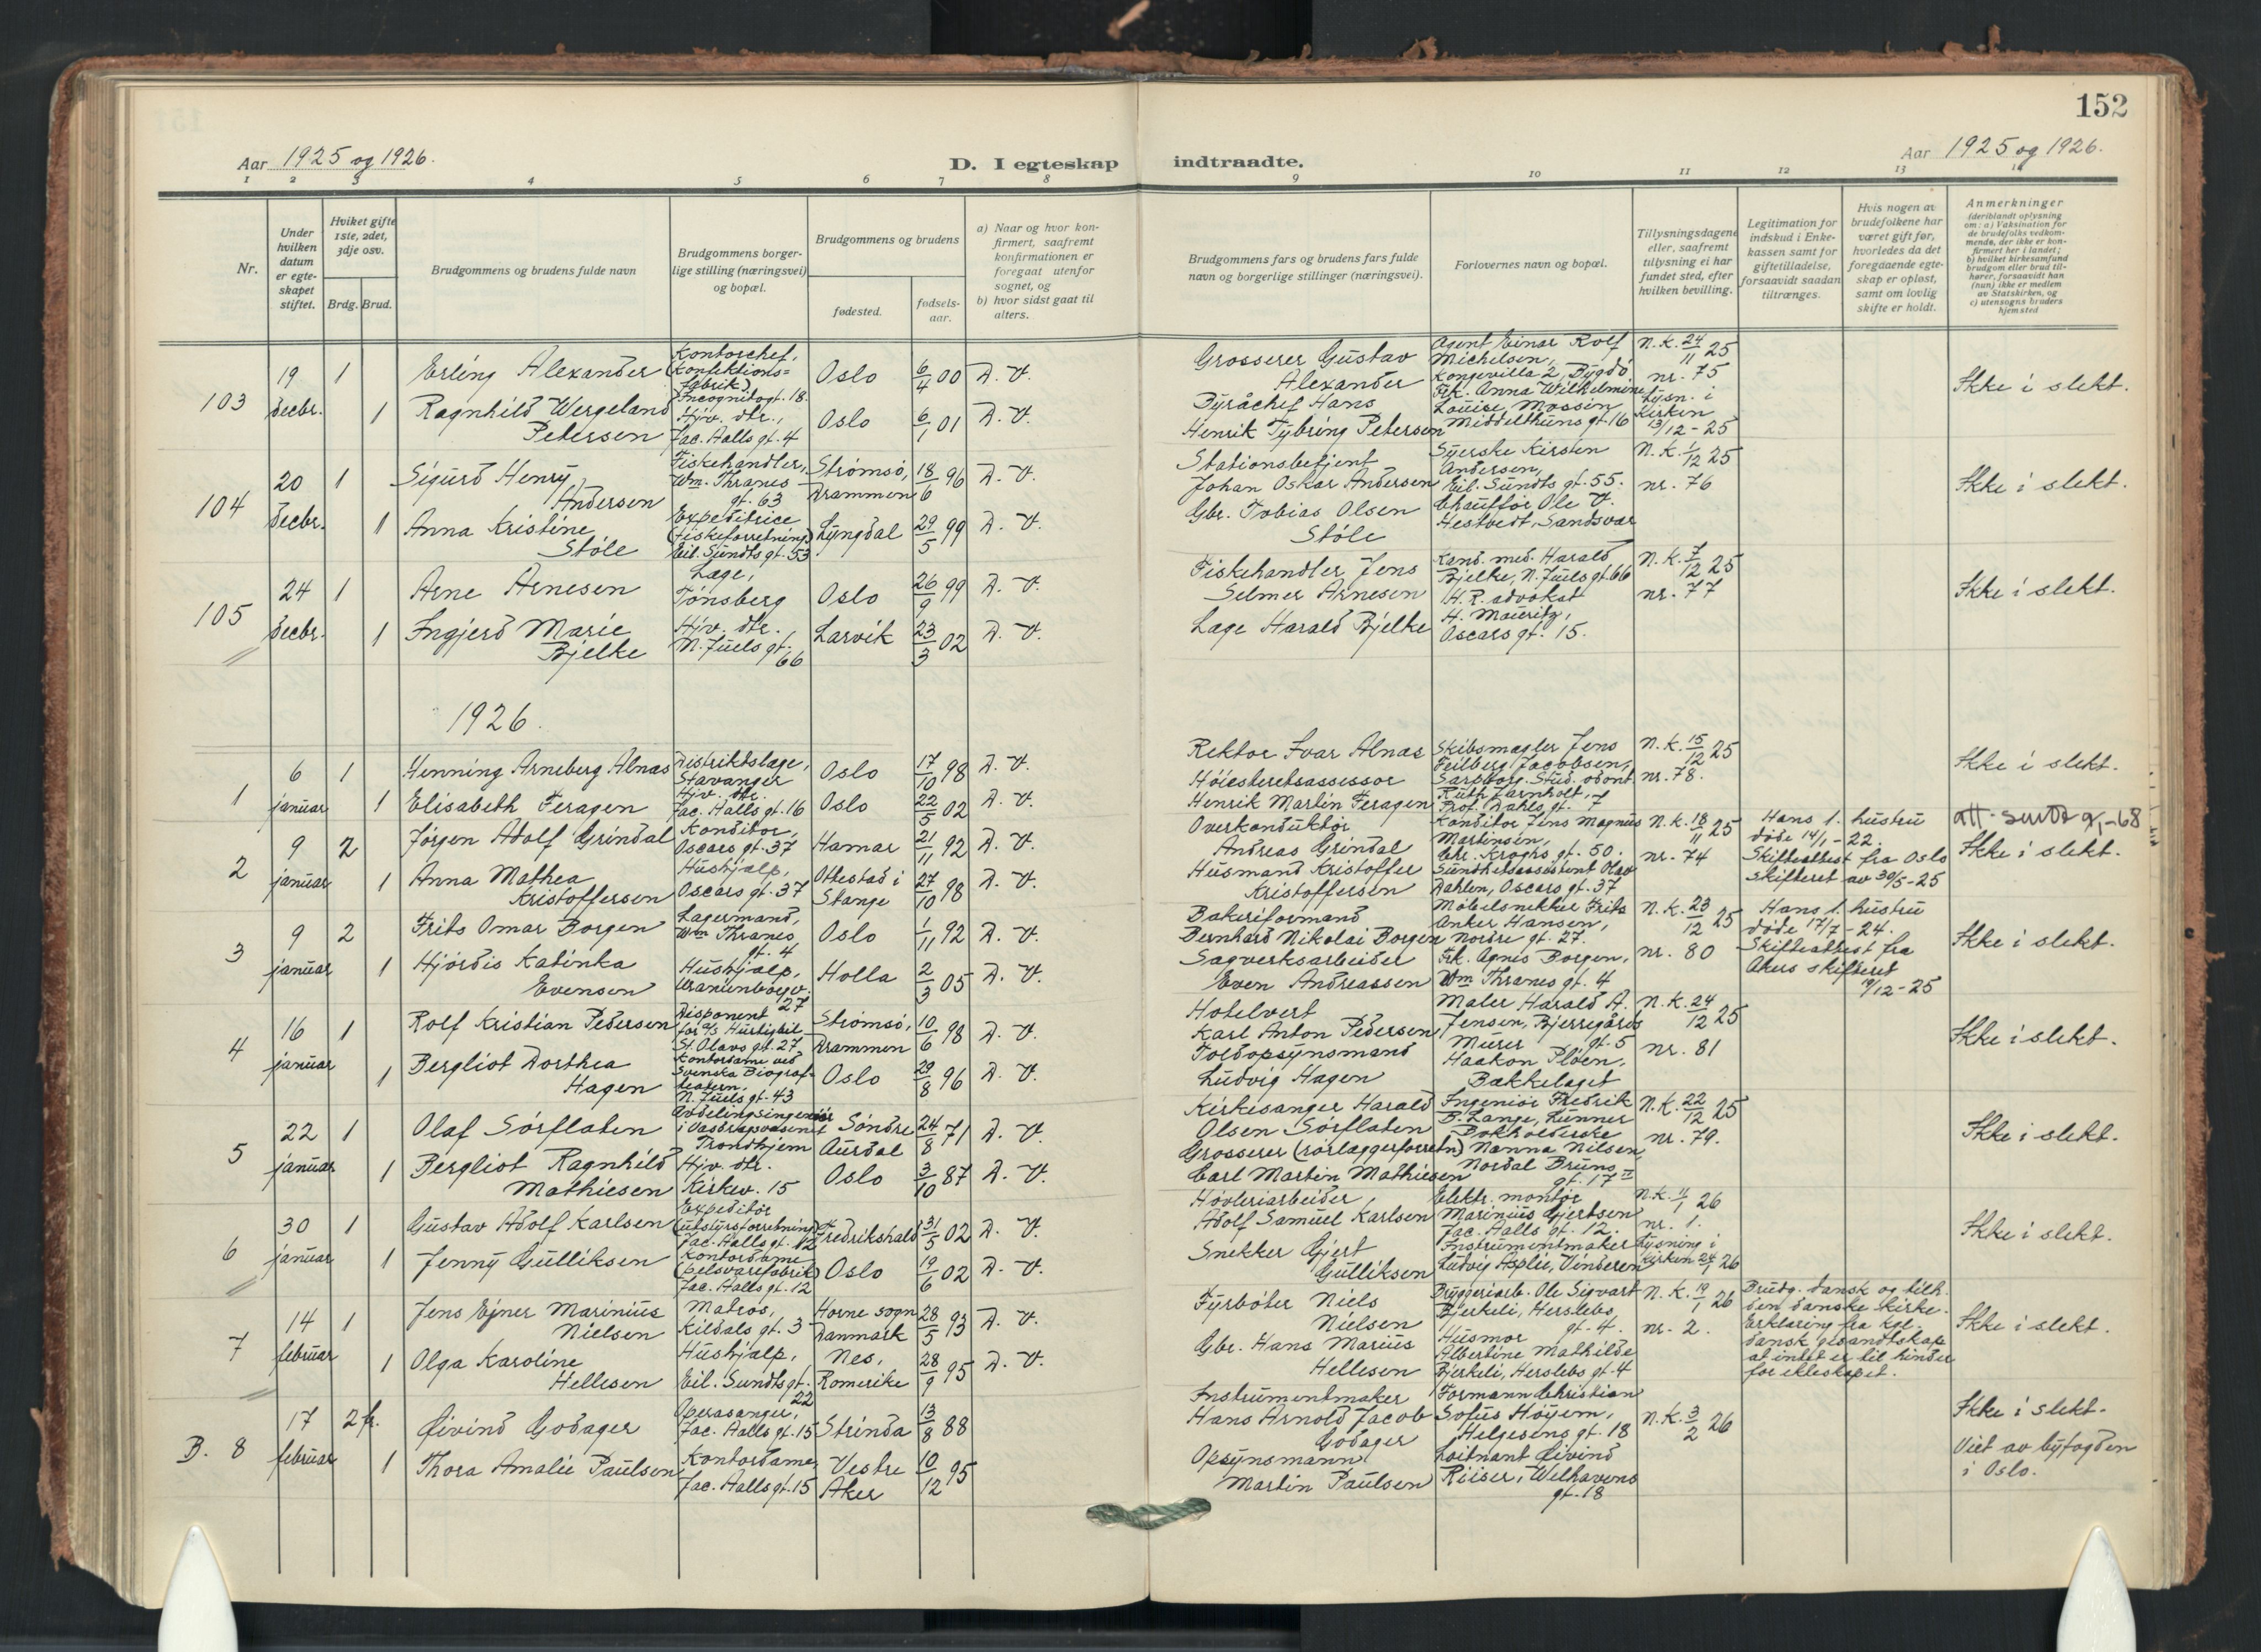 152
Aar 1925 og 1926.
D. I egteskap indtraadte.
Aar 1925 og 1926.
1 2 3 4 5 6 7 8 9 10 11 12 13 14
Nr.
Under
hvilken
datum
er egte-
skapet
stiftet.
Hvilket gifte
1ste, 2det,
3dje osv.
Brdg. Brud.
Brudgommens og brudens fulde navn
Brudgommens borger-
lige stilling (næringsvei)
og bopæl.
Brudgommens og brudens
fødested.
fødsels-
aar.
a) Naar og hvor kon-
firmert, saafremt
konfirmationen er
foregaat utenfor
sognet, og
b) hvor sidst gaat til
alters.
Brudgommens fars og brudens fars fulde
navn og borgerlige stillinger (næringsvei).
Forlovernes navn og bopæl.
Tillysningsdagene
eller, saafremt
tillysning ei har
fundet sted, efter
hvilken bevilling.
Legitimation for
indskud i Enke-
kassen samt for
giftetilladelse,
forsaavidt saadan
tiltrænges.
Hvis nogen av
brudefolkene har
været gift før,
hvorledes da det
foregaaende egte-
skap er opløst,
samt om lovlig
skifte er holdt.
Anmerkninger
(deriblandt oplysning
om: a) Vaksination for
de brudefolks vedkom-
mende, der ikke er kon-
firmert her i landet;
b) hvilket kirkesamfund
brudgom eller brud til-
hører, forsaavidt han
(hun) ikke er medlem
av Statskirken, og
c) utensogns bruders
hjemsted
103
19
decbr.
1
Erling Alexander
Kontorchef,
(Konfektions=
fabrik)
Incognitogt. 18
Oslo
6/4 00
D. V.
1
Ragnhild Wergeland
Petersen
Hjv. dtr.,
Jac. Aalls gt. 4
Oslo
6/1 01
D. V.
Grosserer Gustav
Alexander
Byråchef Hans
Henrik Tybring Petersen
Agent Einar Rolf
Michelsen,
Kongevilla 2, Bygdö
Frk. Anna Wilhelmine
Louise Mossin
Middelthuns gt. 16
N. K. 24/11 25
nr. 75
Lysn. i
Kirken
13/12 - 25
Ikke i slekt.
104
20
decbr.
1
Sigurd Henry
Andersen
Fiskehandler,
Wm. Thranes
gt. 63
Strømsö,
Drammen
18/6 96
D. V.
1
Anna Kristine
Støle
Expeditrice
(fiskeforretning)
Eil. Sundts gt. 53
Lyngdal
29/5 99
D. V.
Stationsbetjent
Johan Oskar Andersen
Gbr. Tobias Olsen
Støle
Syerske Kirsten
Andersen,
Eil. Sundts gt. 55.
Chauffør Ole V.
Hestvedt, Sandsvær
N. K. 1/12 25
nr. 76
Ikke i slekt.
105
24
decbr.
1
Arne Arnesen
Læge,
Tønsberg
Oslo
26/9 99
D. V.
1
Ingjerd Marie
Bjelke
Hjv. dtr.
N. Juels gt.
66
Larvik
23/3 02
D. V.
Fiskehandler Jens
Selmer Arnesen
Læge Harald Bjelke
Kand. med. Harald
Bjelke, N. Juels gt. 66
H. R. advokat
H. Mauritz,
Oscars gt. 15.
N. K. 7/12 25
nr. 77
Ikke i slekt.
1926.
1
6
januar
1
Henning Arneberg Alnæs
Distriktslæge,
Stavanger
Oslo
17/10 98
D. V.
1
Elisabeth Feragen
Hjv. dtr.
Jac. Aalls gt. 16
Oslo
22/5 02
D. V.
Rektor Ivar Alnæs
Höiesteretsassessor
Henrik Martin Feragen
Skibsmægler Jens
Feilberg Jacobsen,
Sarpborg. Stud. odont
Ruth Jarnholt,
Prof. Dahls gt. 7
N. K. 15/12 25
nr. 78.
Ikke i slekt.
2
9
januar
2
Jørgen Adolf Grindal
Konditor,
Oscars gt. 37
Hamar
21/11 92
D. V.
1
Anna Mathea
Kristoffersen
Hushjælp,
Oscars gt. 37
Ottestad i
Stange
27/10 98
D. V.
Overkonduktör
Andreas Grindal
Husmand Kristoffer
Kristoffersen
Konditor Jens Magnus
Martinsen,
Chr. Kroghs gt. 50.
Sundhetsassistent Olav
Dahlen, Oscars gt. 37
N. K. 18/11 25
nr. 74
Hans 1. hustru
döde 14/1 - 22.
Skifteattest fra Oslo
skifteret av 30/5 - 25
Ikke i slekt.
3
9
januar
2
Frits Omar Borgen
Lagermand,
Wm Thranes
gt. 4
Oslo
1/11 92
D. V.
1
Hjørdis Katinka
Evensen
Hushjælp,
Uranienborgv.
27
Holla
2/3 05
D. V.
Bakeriformand
Bernhard Nikolai Borgen
Sagverksarbeider
Even Andreassen
Möbelsnekker Frits
Anker Hansen,
Nordre gt. 27.
Frk. Agnes Borgen,
Wm Thranes gt. 4
N. K. 23/12 25
nr. 80
Hans 1. hustru
døde 17/7 - 24.
Skifteattest fra
Akers skifteret
19/12 - 25
Ikke i slekt.
4
16
januar
1
Rolf Kristian Pedersen
Disponent
for A/S Hurtigbil
St. Olavs gt. 27
Strömsö,
Drammen
10/6 98
D. V.
1
Bergliot Dorthea
Hagen
Kontordame ved
Svenska Biograf-
teatern,
N. Juels gt. 43
Oslo
29/8 96
D. V.
Hotelvert
Karl Anton Pedersen
Toldopsynsmand
Ludvig Hagen
Maler Harald A.
Jensen, Bjerregårds
gt. 5
Murer
Haakon Pløen,
Bækkelaget
N. K. 24/12 25
nr. 81
Ikke i slekt.
5
22
januar
1
Olaf Sörflaten
Avdelingsingeniör
i Vasdragsvæsenet
Trondhjem
Söndre
Aurdal
24/8 71
D. V.
1
Bergliot Ragnhild
Mathiesen
Hjv. dtr.
Kirkev. 15
Oslo
3/10 87
D. V.
Kirkesanger Harald
Olsen Sörflaten
Grosserer (rörlæggerforretn)
Carl Martin Mathiesen
Ingeniör Fredrik
B. Lange, Lunner
Bokholderske
Nanna Nilsen,
Nordal Bruns
gt. 17 II
N. K. 22/12 25
nr. 79.
Ikke i slekt.
6
30
januar
1
Gustav Adolf Karlsen
Expeditör
(utstyrsforretning)
Jac. Aalls gt. 12
Fredrikshald
31/5 02
D. V.
1
Jenny Gulliksen
Kontordame
(pelsvarefabrik)
Jac. Aalls gt. 12
Oslo
19/6 02
D. V.
Høvleriarbeider
Adolf Samuel Karlsen
Snekker Gjert
Gulliksen
Elektr. montør
Marinius Gjertsen
Jac. Aalls gt. 12.
Instrumentmaker
Ludvig Asplie, Vinderen
nr. 1.
Lysning i
Kirken 24/1 26
Ikke i slekt.
7
14
februar
1
Jens Ejner Marinius
Nielsen
Matros,
Kildals gt. 3
Horne sogn
Danmark
28/5 93
D. V.
1
Olga Karoline
Hellesen
Hushjælp,
Eil. Sundts gt.
22
Nes,
Romerike
28/9 95
D. V.
Fyrböter Niels
Nielsen
Gbr. Hans Marius
Hellesen
Bryggeriarb. Ole Sigvart
Bjerkeli, Herslebs
gt. 4.
Husmor
Albertine Mathilde
Bjerkeli, Herslebs gt. 4
N. K. 19/1 26
nr. 2.
Brudg. dansk og tilh.
den danske kirke.
Erklæring fra kgl.
dansk gesandtskap
at intet er til hinder
for ekteskapet.
Ikke i slekt.
B. 8
17
februar
2 fr.
Øivind Godager
Operasanger,
Jac. Aalls gt. 15
Strinda
13/8 88
1
Thora Amalie Paulsen
Kontordame,
Jac. Aalls gt. 15
Vestre
Aker
10/12 95
Instrumentmaker
Hans Arnold Jacob
Godager
Opsynsmann
Martin Paulsen
Formann Christian
Sofus Höyem,
Helgesens gt. 18
Loitnant Øivind
Riiser, Welhavens
gt. 18
N. K. 3/2 26
Ikke i slekt.
Viet av byfogden
i Oslo.